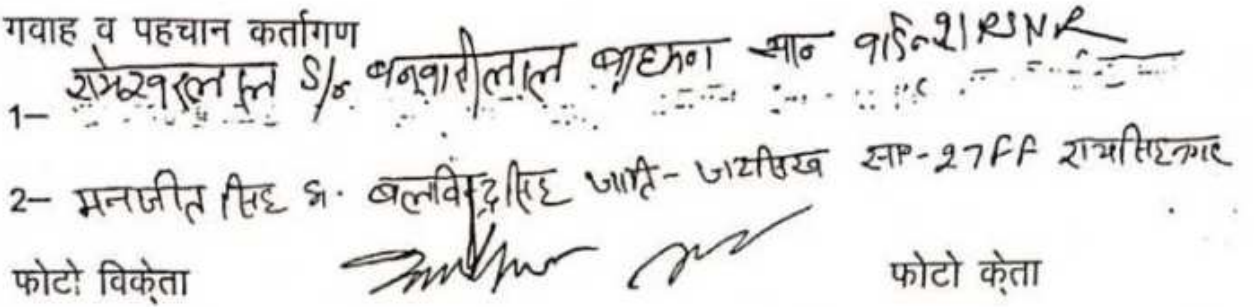 गवाह व पहचान कर्तागण
1- रामेश्वरलाल S/o बनवारीलाल ब्राह्मण सान वार्ड न 21 RSNR
2- मनजीत सिंह S. बलविन्द्र सिंह जाति - जटसिख सा० - 27FF रायसिंहनगर
फोटो विक्रेता फोटो क्रेता